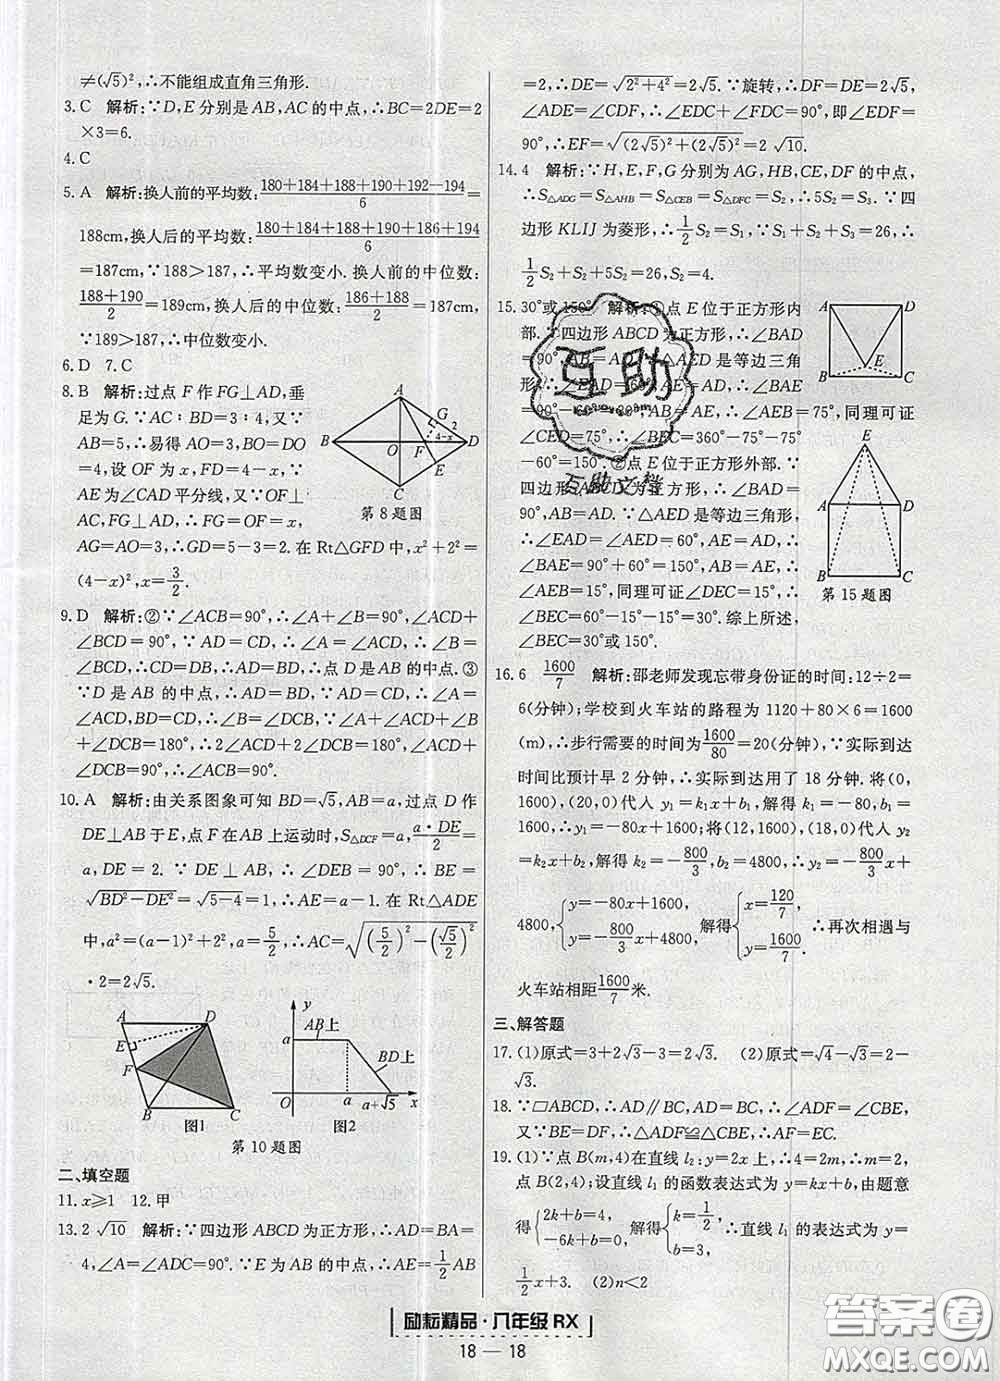 ≠(√5)²,∴不能组成直角三角形.
3. C 解析:∵D,E分别是AB,AC的中点,∴BC=2DE=2
×3=6.
4. C
5. A 解析:换人前的平均数:(180+184+188+190+192—194)/6=
188cm,换人后的平均数:(180+184+188+190+186+194)/6
=187cm,∵188>187,∴平均数变小.换人前的中位数:
(188+190)/2=189cm,换人后的中位数:(186+188)/2=187cm,
∵189>187,∴中位数变小.
6. D 7. C
8. B 解析:过点F作FG⊥AD,垂
足为G.∵AC∶BD=3∶4,又∵
AB=5,∴易得AO=3,BO=DO
=4,设OF为x,FD=4-x.∵
AE为∠CAD平分线,又∵OF⊥
AC,FG⊥AD,∴FG=OF=x,
AG=AO=3,∴GD=5-3=2.在Rt△GFD中,x²+2²=
(4-x)²,x=3/2.
A
B
O
F
D
G
2
4-x
E
C
第8题图
9. D 解析:②∵∠ACB=90°,∴∠A+∠B=90°,∠ACD+
∠BCD=90°,∵AD=CD,∴∠A=∠ACD,∴∠B=
∠BCD,∴CD=BD,∴AD=BD,∴点D是AB的中点.③
∵D是AB的中点,∴AD=BD,∵AD=CD,∴∠A=
∠ACD,BD=CD,∴∠B=∠BCD,∵∠A+∠ACD+∠B
+∠DCB=180°,∴2∠ACD+2∠DCB=180°,∴∠ACD+
∠DCB=90°,∴∠ACB=90°.
10. A 解析:由关系图象可知BD=√5,AB=a,过点D作
DE⊥AB于E,点F在AB上运动时,S△DCF=a,a·DE/2=
a,DE=2.∵DE⊥AB,∴∠DEB=90°,∴BE=
√(BD²-DE²)=√(5-4)=1,∴AE=a-1.在Rt△ADE
中,a²=(a-1)²+2²,a=5/2,∴AC=√((5/2)²-(√5/2)²)
·2=2√5.
A
D
E
F
B
C
图1
y
a
AB上
BD上
O
a
a+√5
x
图2
第10题图
二、填空题
11. x≥1 12. 甲
13. 2 √10 解析:∵四边形ABCD为正方形,∴AD=BA=
4,∠A=∠ADC=90°.∵E为AB的中点,∴AE=1/2AB
=2,∴DE=√(2²+4²)=2√5.∵旋转,∴DF=DE=2√5,
∠ADE=∠CDF,∴∠EDF=∠ADC=90°,即∠FDC=90°,
∴EF=√((2√5)²+(2√5)²)=2√10.
14. 4 解析:∵H,E,F,G分别为AG,HB,CE,DF的中点,
∴S△ADG=S△AHB=S△CEB=S△DFC=S₂,∴5S₂=26.∵四
边形KLIJ为菱形,∴1/2S₂=S₁,∵S₁+S₂+S₃=26,
1/2S₂+S₂+5S₂=26,S₂=4.
15. 30°或150° 解析:①点E位于正方形内
部.∵四边形ABCD为正方形,∴∠BAD
=90°,AB=AD.∵△AED是等边三角
形,∴∠EAD=60°,AE=AD,∴∠BAE
=90°-60°=30°,AB=AE,∴∠AEB=75°,同理可证
∠CED=75°,∴∠BEC=360°-75°-75°
-60°=150°.②点E位于正方形外部.∵
四边形ABCD为正方形,∴∠BAD=
90°,AB=AD.∵△AED是等边三角形,
∴∠EAD=∠AED=60°,AE=AD,∴
∠BAE=90°+60°=150°,AB=AE,∴
∠AEB=15°,同理可证∠DEC=15°,∴
∠BEC=60°-15°-15°=30°.综上所述,
∠BEC=30°或150°.
A
D
E
B
C
E
A
D
B
C
第15题图
16. 6 1600/7 解析:邵老师发现忘带身份证的时间:12÷2=
6(分钟);学校到火车站的路程为1120+80×6=1600
(m),∴步行需要的时间为1600/80=20(分钟),∵实际到达
时间比预计早2分钟,∴实际到达用了18分钟.将(0,
1600),(20,0)代人y₁=k₁x+b₁,解得k₁=-80,b₁=
1600,∴y₁=-80x+1600;将(12,1600),(18,0)代人y₂
=k₂x+b₂,解得k₂=-800/3,b₂=4800,∴y₂=-800/3x+
4800,{y=-80x+1600, y=-800/3x+4800, 解得{x=120/7, y=1600/7. ∴再次相遇与
火车站相距1600/7米.
三、解答题
17. (1)原式=3+2√3-3=2√3. (2)原式=√4-√3=2-
√3.
18. ∵□ABCD,∴AD∥BC,AD=BC,∴∠ADF=∠CBE,
又∵BE=DF,∴△ADF≌△CBE,∴AF=EC.
19. (1)∵点B(m,4)在直线l₂:y=2x上,∴4=2m,m=2,
点B(2,4);设直线l₁的函数表达式为y=kx+b,由题意
得{2k+b=4, -6k+b=0, 解得{k=1/2, b=3. ∴直线l₁的表达式为y=
1/2x+3. (2)n<2
互助
互助文档
励耘精品·八年级RX
18 — 18
答案圈
MXQE.COM